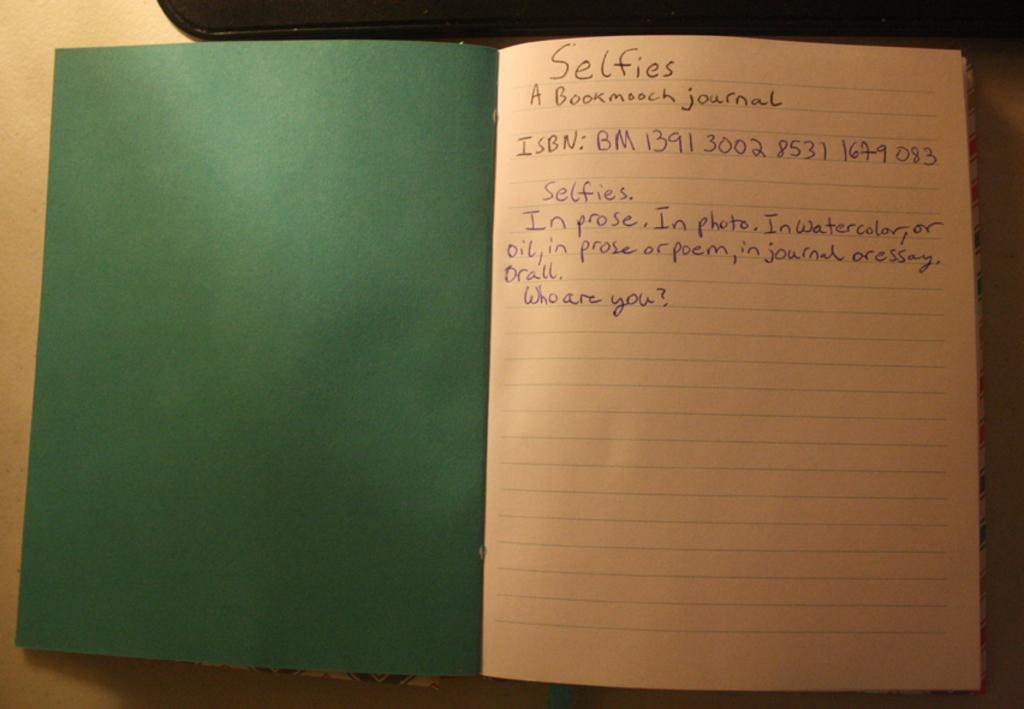 Selfies
A Bookmooch journal
ISBN: BM 1391 3002 8531 1679 083
Selfies.
In prose. In photo. In watercolor, or
oil, in prose or poem, in journal or essay.
Or all.
Who are you?